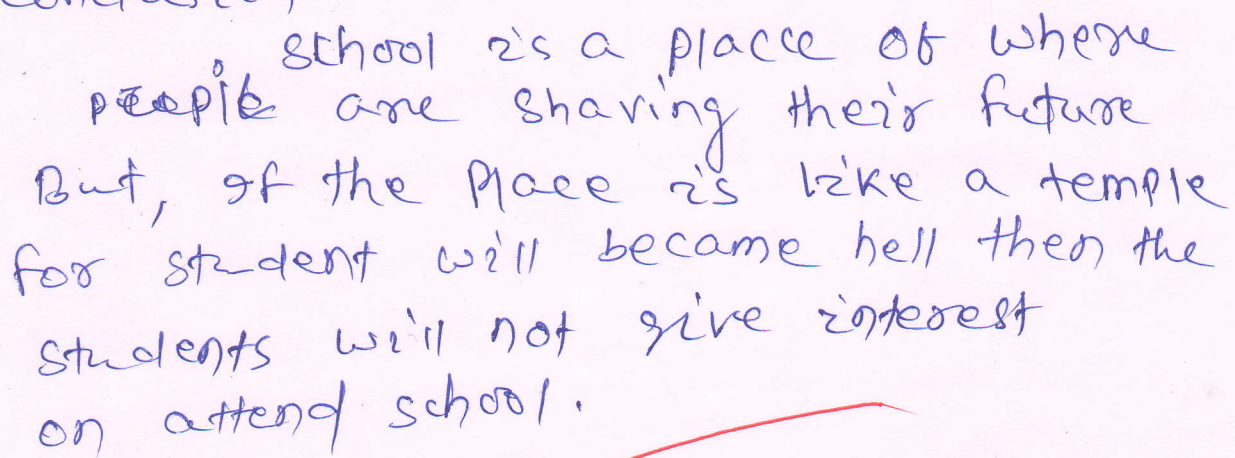 School is a placce of where
people are shaving their future
But, If the place is like a temple
for student will became hell then the
students will not give interest
on attend school.